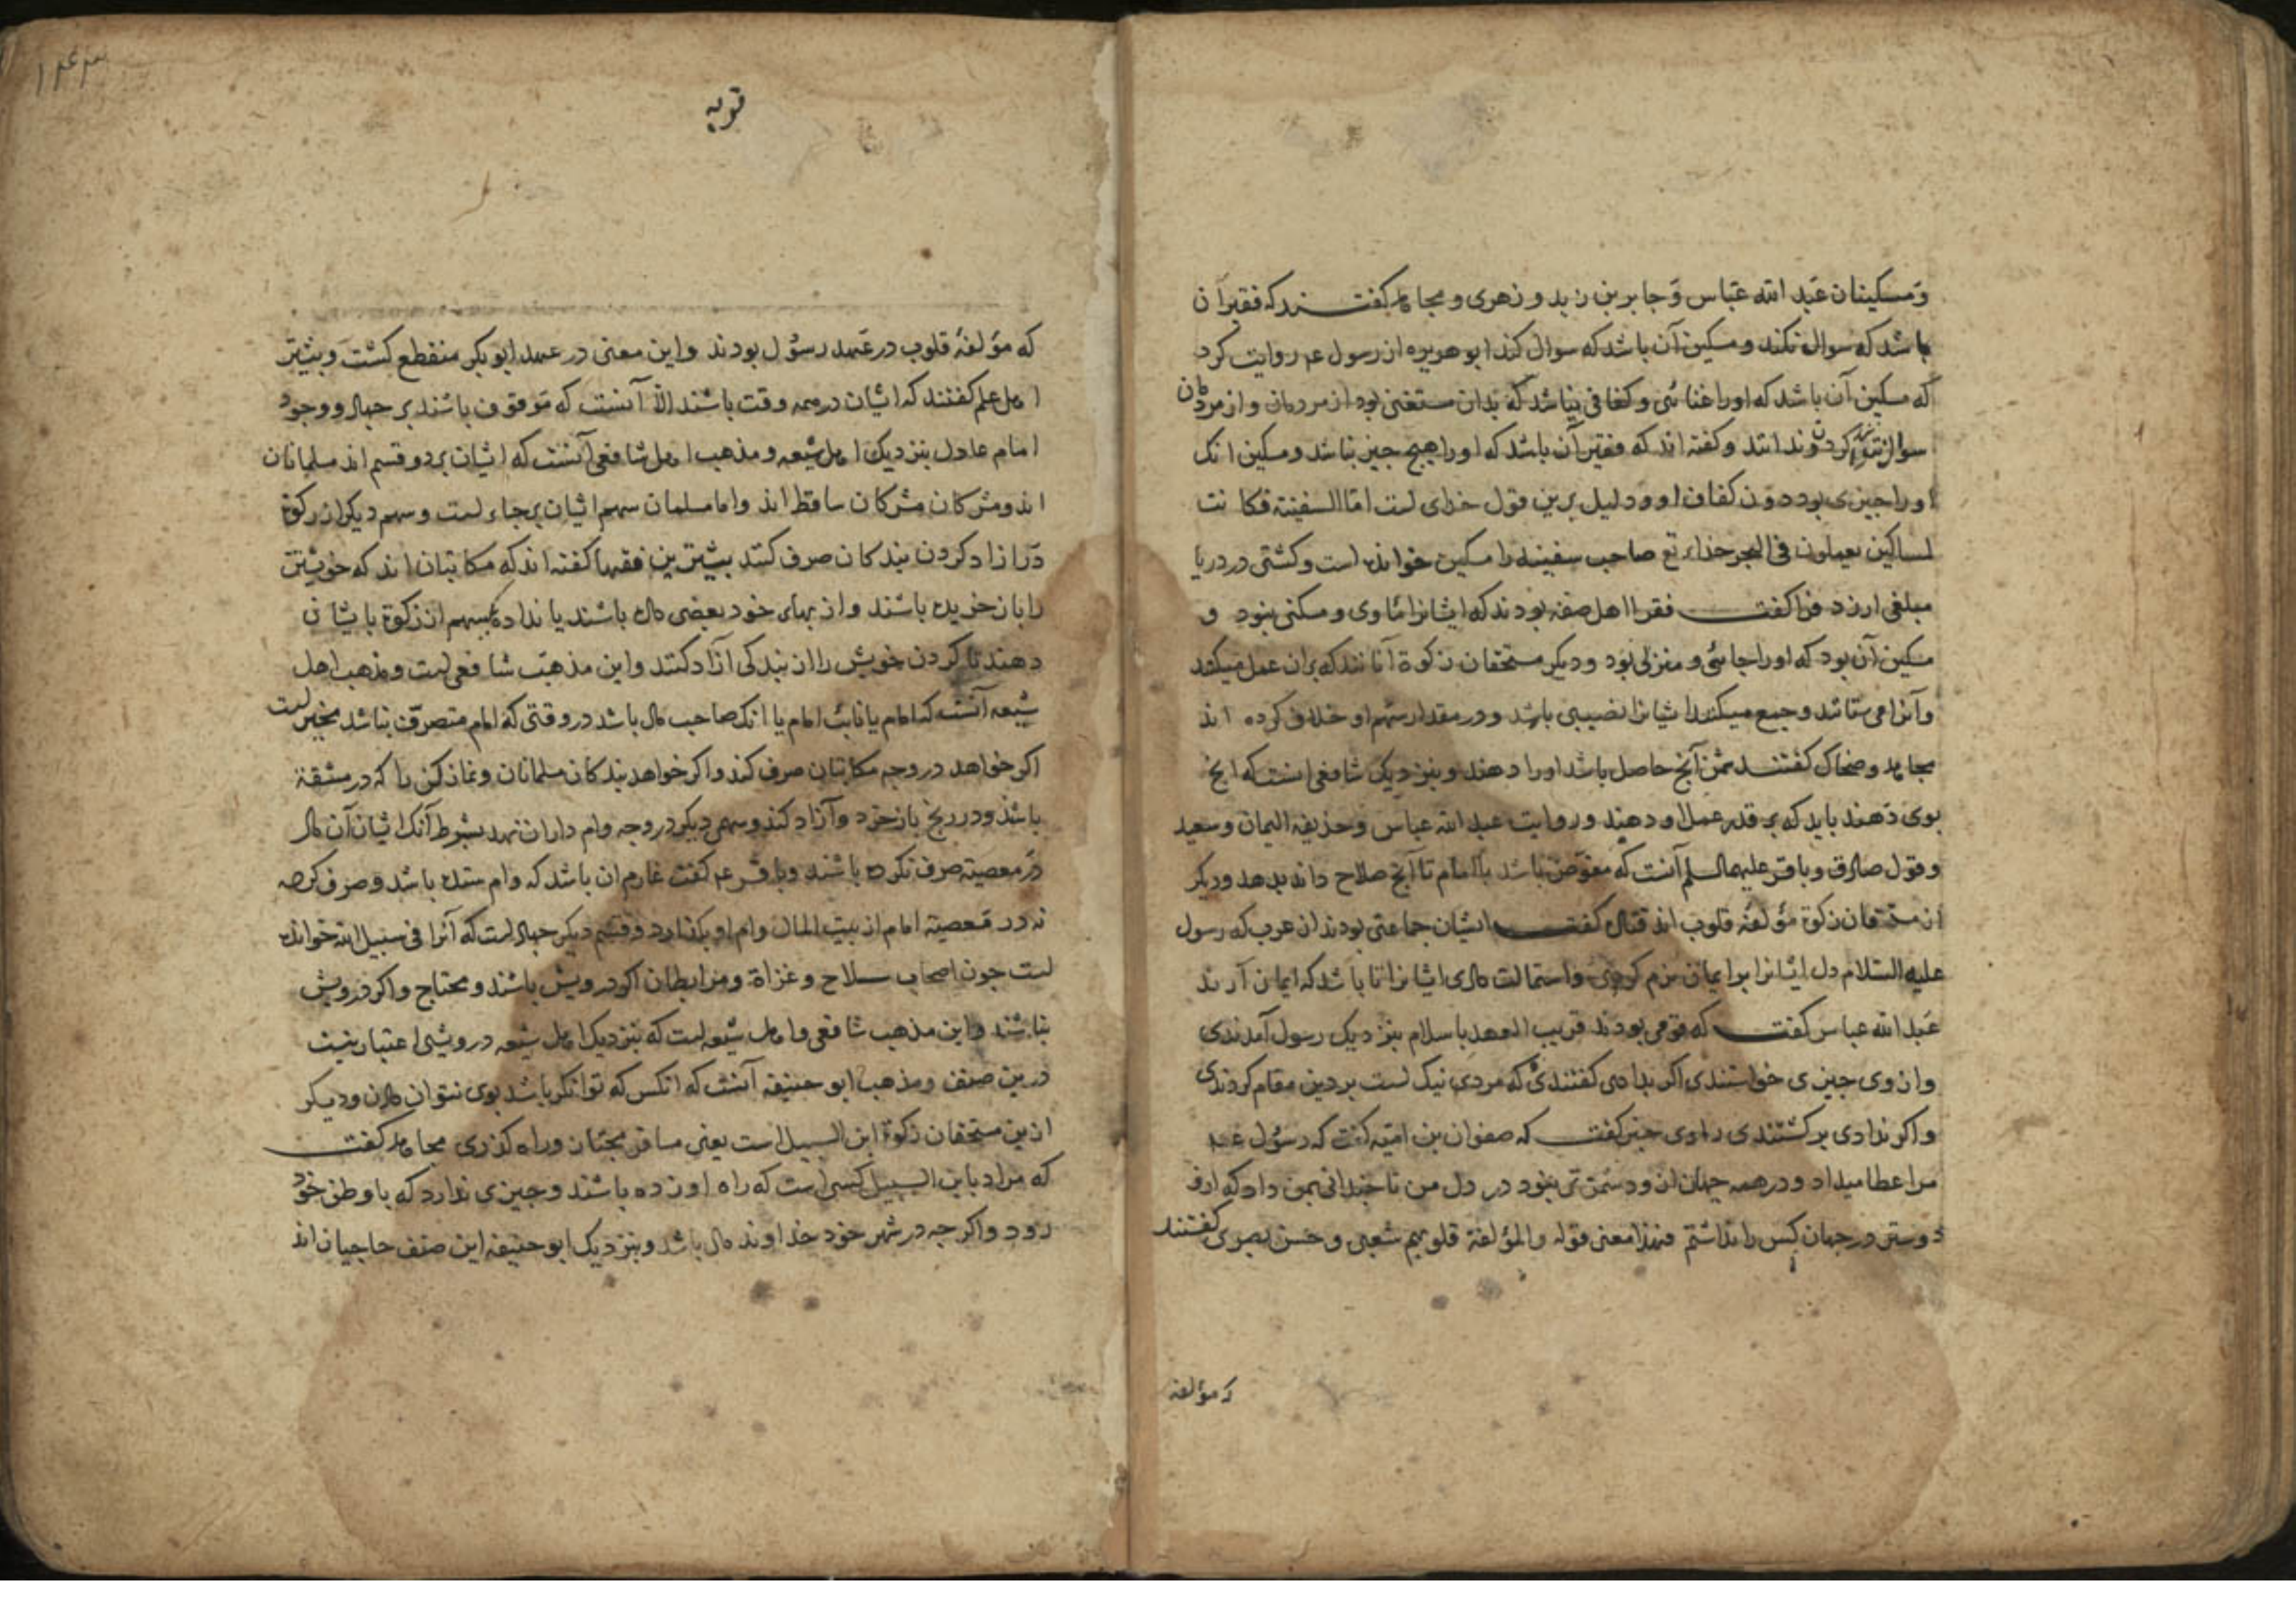 ومسکینان عبد الله عباس و جابر بن زید و زهری و مجاهد کفتند که فقیر آن
باشد که سوال نکند و مسکین آن باشد که سوال کند ابو هریره از رسول عم روایت کرد
که مسکین آن باشد که اورا غنائی و کفافی نباشد که بدان مستغنی بود از مردمان و از مردمان
سوال کردن نداند و کفته اند که فقیر آن باشد که اورا هیچ چیز نباشد و مسکین انک
اورا چیزی بود دون کفاف او و دلیل برین قول خدای است اما السفینة فکانت
لمساکین یعملون فی البحر خدای تع صاحب سفینه را مسکین خوانده است و کشتی در دریا
مبلغی ارزد فرا کفت فقرا اهل صفه بودند که ایشانرا ماوی و مسکنی نبود و
مسکین آن بود که اورا جائی و منزلی بود و دیکر مستحقان زکوة آنانند که بران عمل میکنند
وآنرا می ستانند و جمع میکنند ایشانرا نصیبی باشد و در مقدار سهم او خلاف کرده اند
مجاهد و ضحاک کفتند ثمن آنچ حاصل باشد اورا دهند و بنزدیک شافعی انست که انچ
بوی دهند باید که بر قدر عمل او دهند و روایت عبد الله عباس و حذیفه الیمان و سعید
و قول صادق و باقر علیهما السلم آنست که مفوض باشد با امام تا آنچ صلاح داند بدهد و دیکر
از مستحقان زکوة مؤلفه قلوب اند قتاده کفت ایشان جماعتی بودند از عرب که رسول
علیه السلام دل ایشانرا بر ایمان نرم کردی و استمالت دادی ایشانرا تا باشد که ایمان آرند
عبد الله عباس کفت که قومی بودند قریب العهد باسلام بنزدیک رسول آمدندی
و از وی چیزی خواستندی اکر بدادی کفتندی که مردی نیک است بر دین مقام کردندی
و اکر ندادی بر کشتندی راوی خبر کفت که صفوان بن امیه کفت که رسول عم
مرا عطا میداد و در همه جهان ازو دشمن تر نبود در دل من تا چندانی بمن داد که ازو
دوستر در جهان کس را نداشتم فهذا معنی قوله والمؤلفة قلوبهم شعبی و حسن بصری کفتند
که مؤلفه
توبه
۱۴۳
که مؤلفه قلوب در عهد رسول بودند و این معنی در عهد ابو بکر منقطع کشت و بیشتر
اهل علم کفتند که ایشان در همه وقت باشند الا آنست که موقوف باشند بر جهاد و وجود
امام عادل بنزدیک اهل شیعه و مذهب اهل شافعی آنست که ایشان بر دو قسم اند مسلمانان
اند و مشرکان مشرکان ساقط اند و اما مسلمان سهم ایشان بر جاء است و سهم دیکر از زکوة
در ازاد کردن بندکان صرف کنند بیشترین فقها کفته اند که مکاتبان اند که خویشتن
را باز خریده باشند و از بهای خود بعضی داده باشند یا نداده سهم از زکوة بایشان
دهند تا کردن خویش را از بندکی ازاد کنند و این مذهب شافعی است و مذهب اهل
شیعه آنست که امام یا نایب امام یا انک صاحب مال باشد در وقتی که امام متصرف نباشد مخیر است
اکر خواهد در وجه مکاتبان صرف کند و اکر خواهد بندکان مسلمانان و نماز کن را که در مشقة
باشند و در رنج باز خرد و آزاد کند و سهمی دیکر در وجه وام داران نهد بشرط آنک ایشان آن مال
در معصیة صرف نکرده باشند و باقر عم کفت غارم ان باشد که وام ستده باشد و صرف کرده
نه در معصیة امام از بیت المال وام او بکذارد و قسم دیکر جهاد است که آنرا فی سبیل الله خوانده
است چون اصحاب سلاح و غزاة و مرابطان اکر درویش باشند و محتاج و اکر درویش
نباشند و این مذهب شافعی و اهل شیعه است که بنزدیک اهل شیعه درویشی اعتبار نیست
درین صنف و مذهب ابو حنیفه آنست که انکس که توانکر باشد بوی نتوان دادن و دیکر
ازین مستحقان زکوة ابن السبیل است یعنی مسافر مجتاز و راه کذری مجاهد کفت
که مراد بابن السبیل کسی است که راه او زده باشند و چیزی ندارد که با وطن خود
رود و اکر چه در شهر خود خداوند مال باشد و بنزدیک ابو حنیفه این صنف حاجیان اند